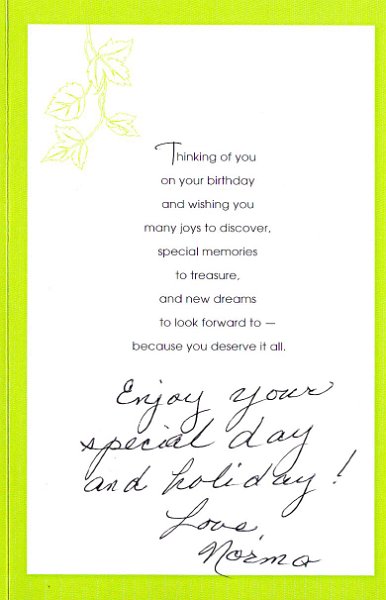 Thinking of you
on your birthday
and wishing you
many joys to discover,
special memories
to treasure,
and new dreams
to look forward to —
because you deserve it all.
Enjoy your
special day
and holiday!
Love,
Norma